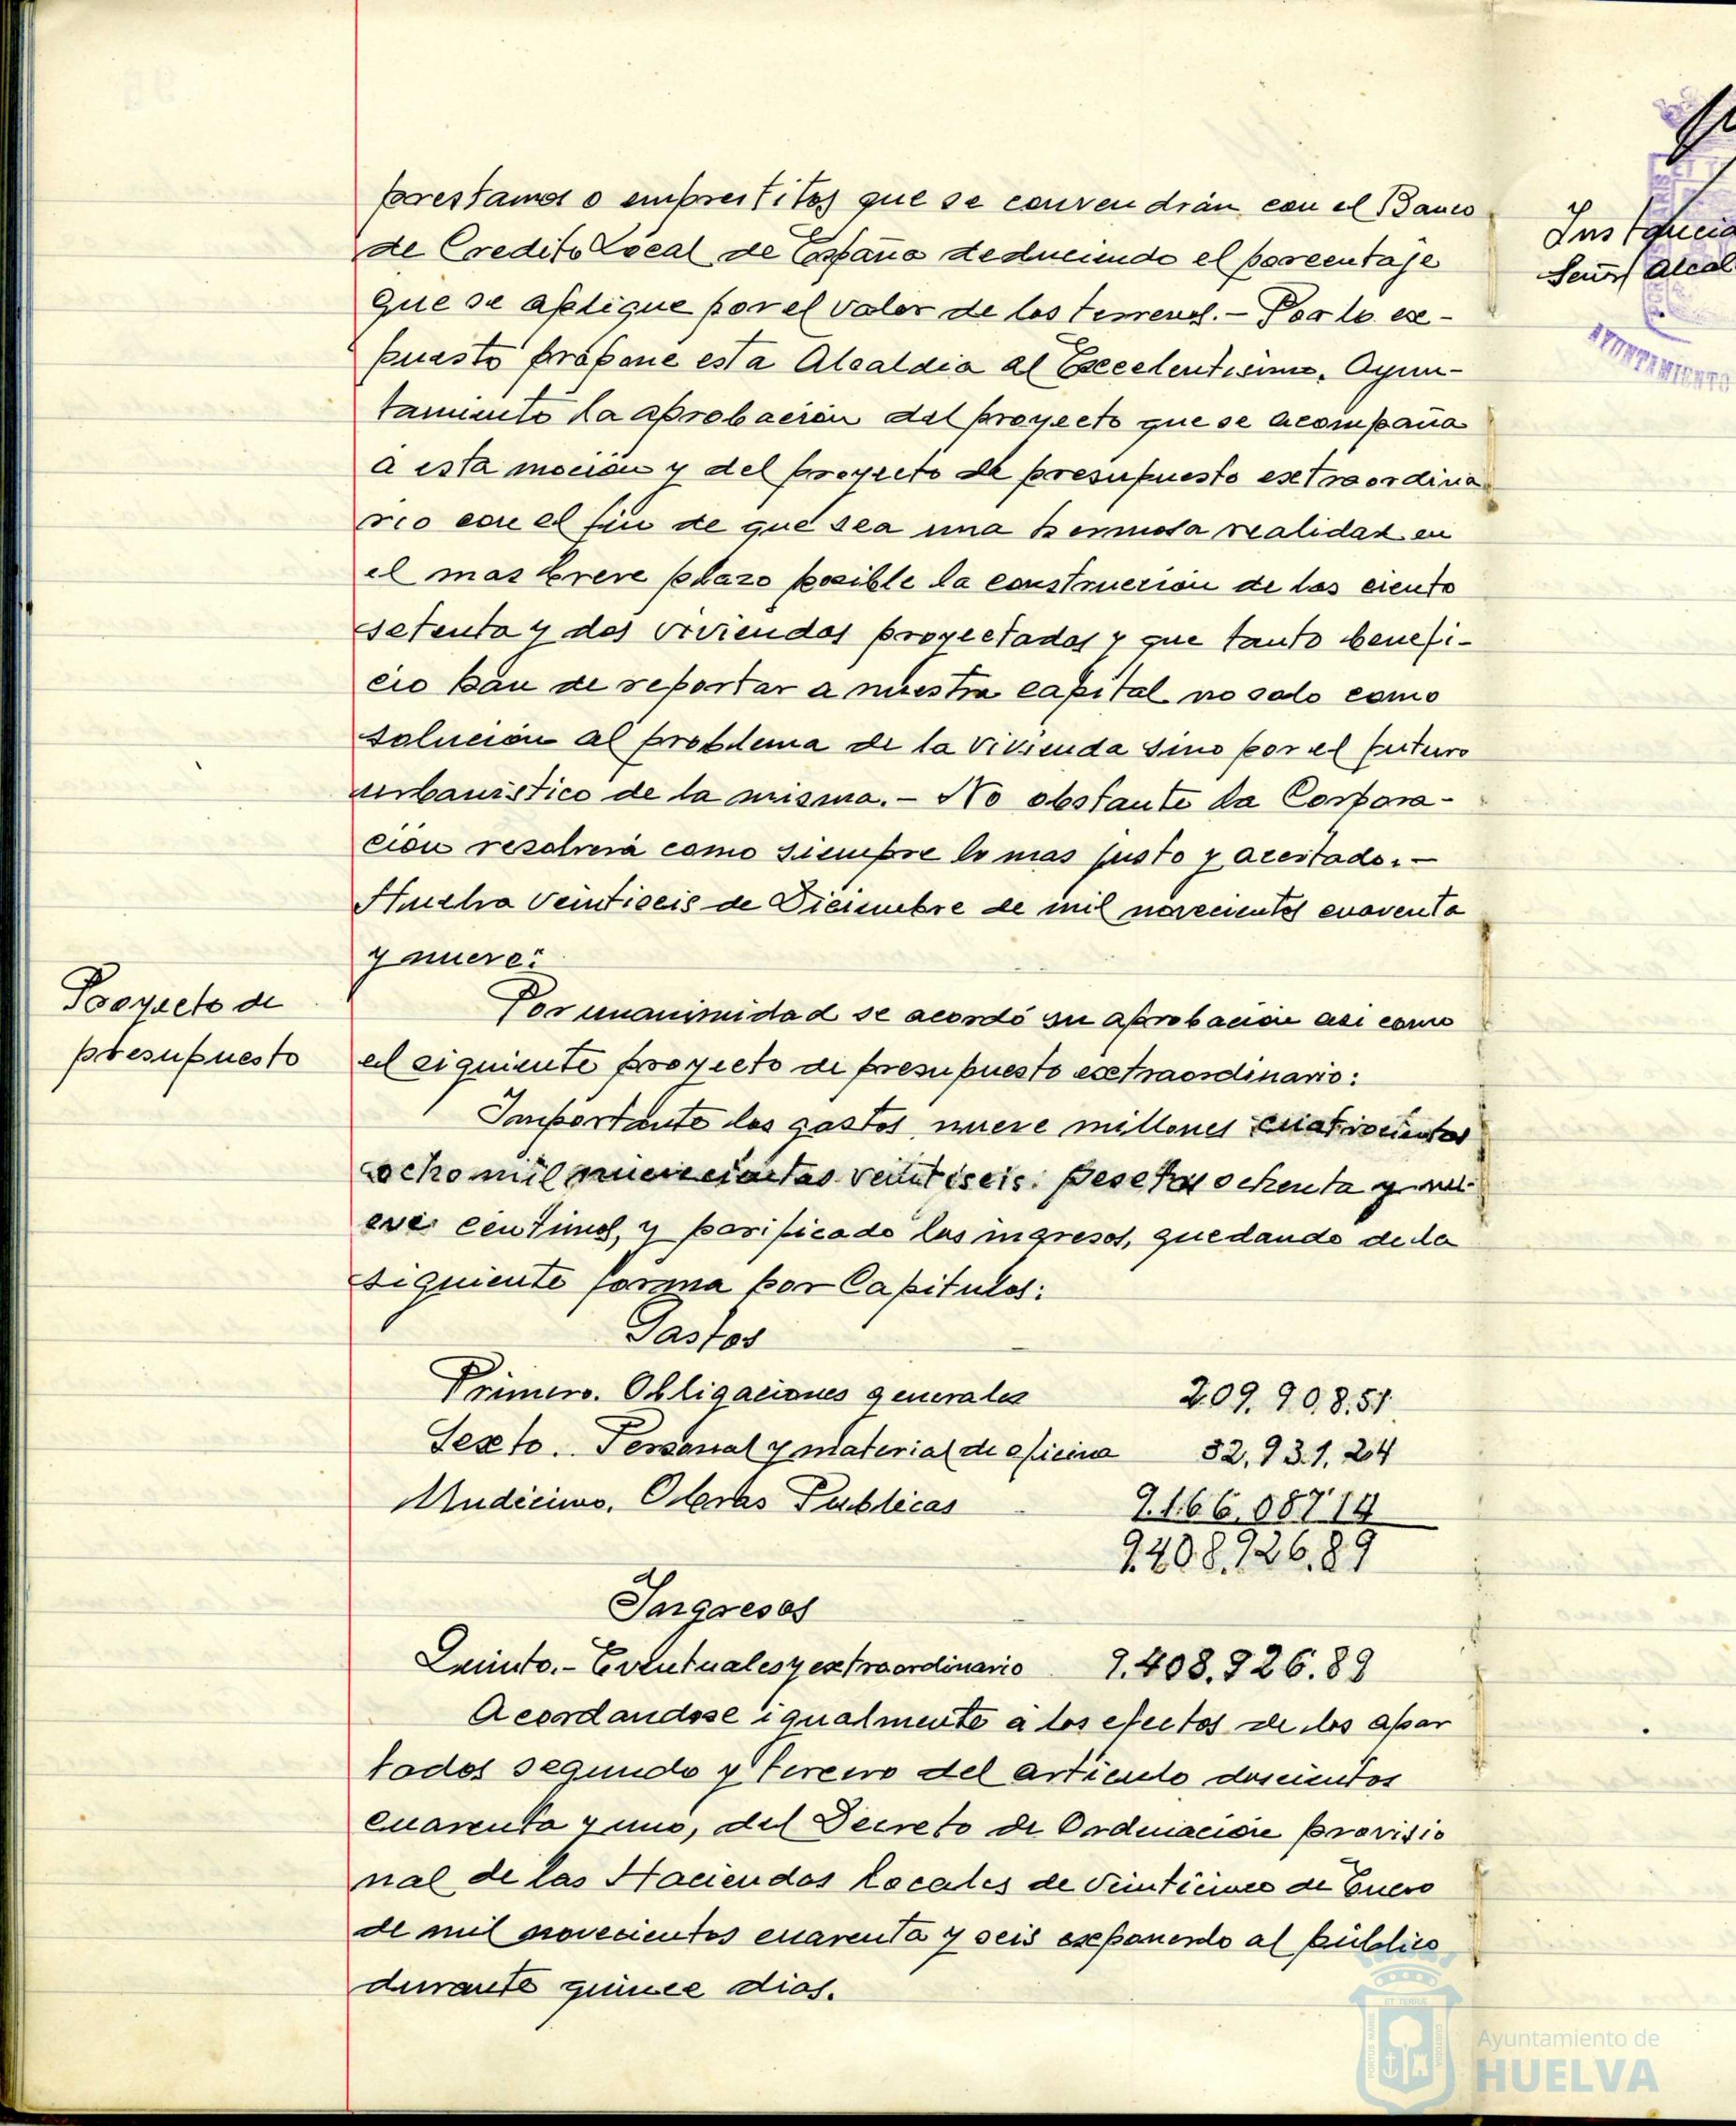 prestamos o emprestitos que se convendrán con el Banco
de Credito Local de España deduciendo el porcentaje
que se aplique por el valor de los terrenos.- Por lo ex-
puesto propone esta Alcaldia al Excelentisimo. Ayun-
tamiento la aprobación del proyecto que se acompaña
a esta moción y del proyecto de presupuesto extraordina
rio con el fin de que sea una hermosa realidad en
el mas breve plazo posible la construcción de las ciento
setenta y dos viviendas proyectadas y que tanto benefi-
cio han de reportar a nuestra capital no solo como
solución al problema de la vivienda sino por el futuro
urbanistico de la misma.- No obstante la Corpora-
cion resolverá como siempre lo mas justo y acertado.-
Huelva veintiseis de Diciembre de mil novecientos cuarenta
y nueve:
Proyecto de
presupuesto
Por unanimidad se acordó su aprobación asi como
el siguiente proyecto de presupuesto extraordinario:
Importante los gastos nueve millones cuatrocientos
ocho mil novecientas veintiseis. pesetas ochenta y nu
eve centimos, y parificado los ingresos, quedando de la
siguiente forma por Capitulos:
Gastos
Primero. Obligaciones generales 209.908.51
Sexto. Personal y material de oficina 32.931.24
Undécimo. Obras Publicas 9.166.087 14
9.408.926.89
Ingresos
Quinto.- Eventuales y extraordinario 9.408.926.89
Acordandose igualmente a los efectos de los apar
tados segundo y tercero del articulo doscientos
cuarenta y uno, del Decreto de Ordenación provisio
nal de las Haciendas Locales de Veinticinco de Enero
de mil novecientos cuarenta y seis exponerlo al público
durante quince dias.
Señor Alcal
AYUNTAMIENTO
Ayuntamiento de
HUELVA